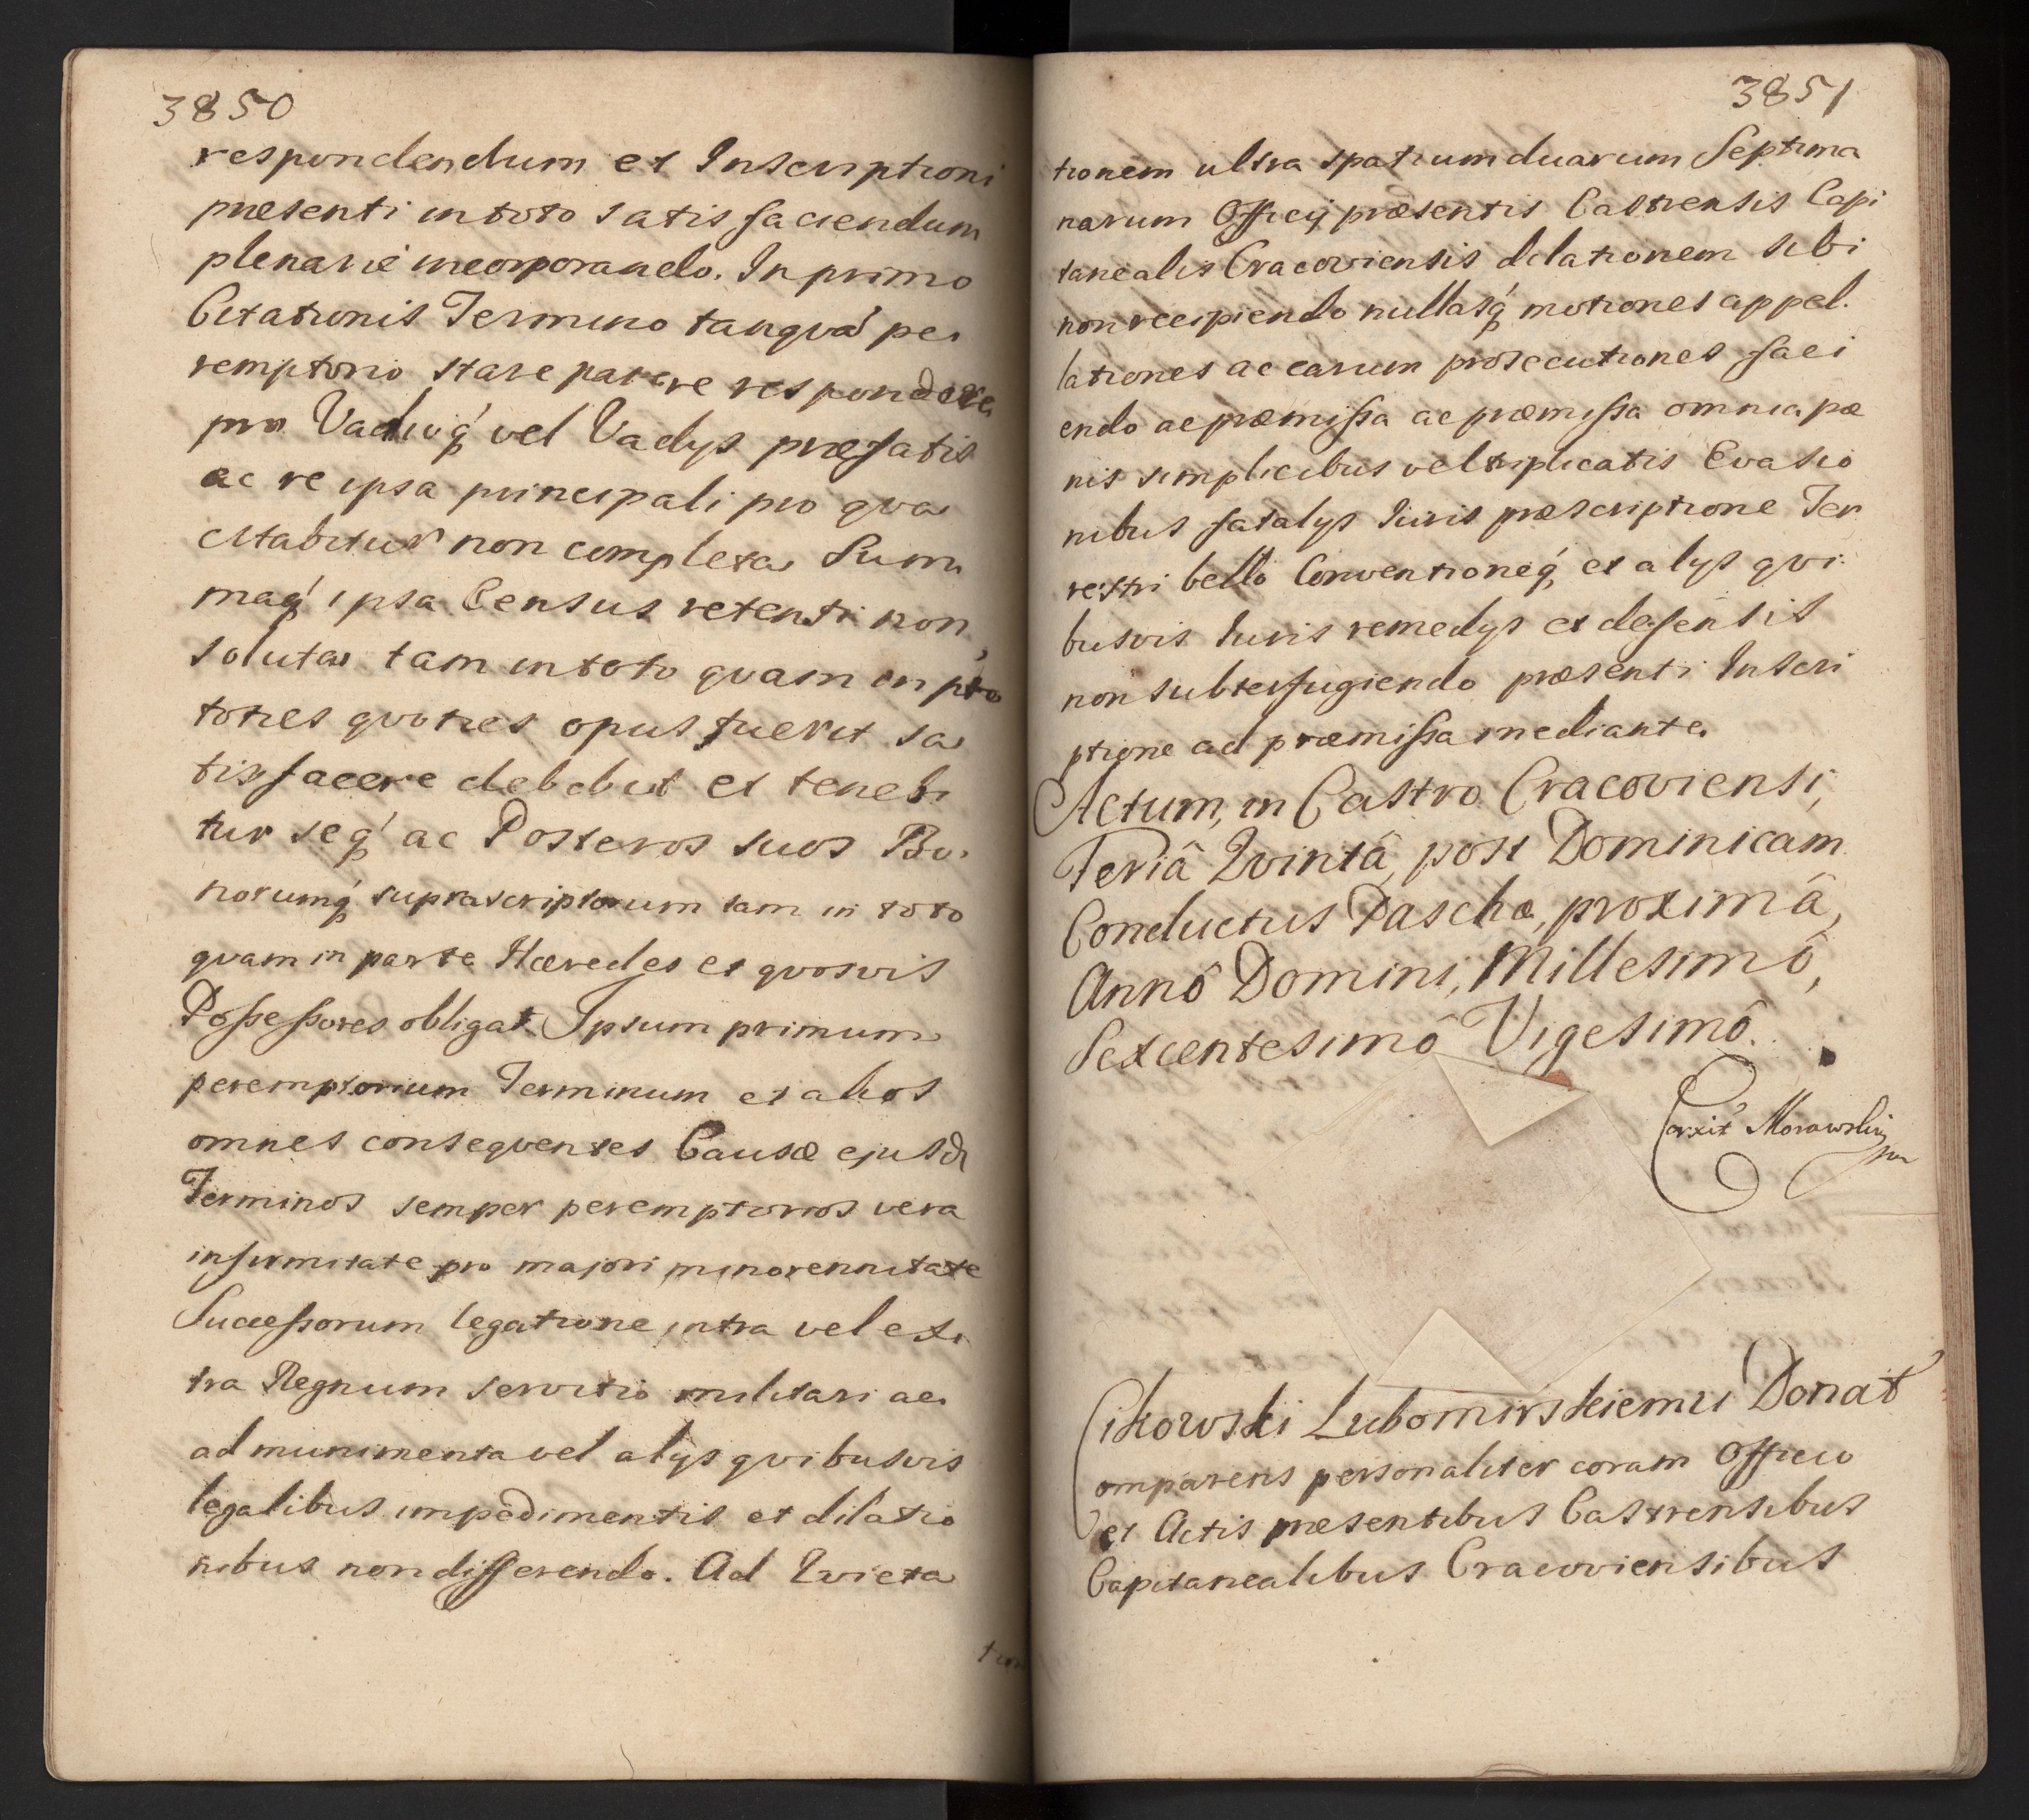 3850
respondendum et Inscriptioni
præsenti in toto satisfaciendum
plenarie incorporando. In primo
Citationis Termino tanqva' pe
remptorio stare parere respondere
pro Vadioq' vel Vadys præfatis
ac re ipsa principali pro qva
citabitur non completa Sum
maq' ipsa Census retenti non
soluta tam in toto quam in p
toties qvoties opus fuerit sa
tisfacere debebit et tenebi
tur seq' ac Posteros suos Bo
norumq' suprascriptorum tam in toto
qvam in parte Hæredes et qvosvis
Possessores obligat. Ipsum primum
peremptorium Terminum et alios
omnes conseqventes Causæ ejusd
Terminos semper peremptorios vera
infirmitate pro majori minorennitate
Successorum legatione intra vel ex
tra Regnum servitio militari ac
ad munimenta vel alys qvibusvis
legalibus impedimentis et dilatio
nibus non differendo. Ad Qvieta
tion
3851
tionem ultra spatium duarum Septima
narum Officy præsentis Castrensis Capi
tanealis Cracoviensis dilationem sibi
non recipiendo nullasq' motiones appel
lationes ac earum prosecutiones faci
endo ac præmissa ac præmissa omnia pæ
nis simplicibus vel triplicatis Evasio
nibus fatalys Iuris præscriptione Ter
restri bello Conventioneq' et alys qvi
busvis Iuris remedys et defensis
non subterfugiendo præsenti Inscri
ptione ad præmissa mediante.
Actum, in Castro Cracoviensi,
Feriâ Qvintâ, post Dominicam
Conductus Paschæ, proximâ,
Annô Domini, Millesimô,
Sexcentesimô Vigesimô.
Corxit Morawski
mp
Cikowski Lubomirskiemu Donat
omparens personaliter coram Officio
et Actis præsentibus Castrensibus
Capitanealibus Cracoviensibus